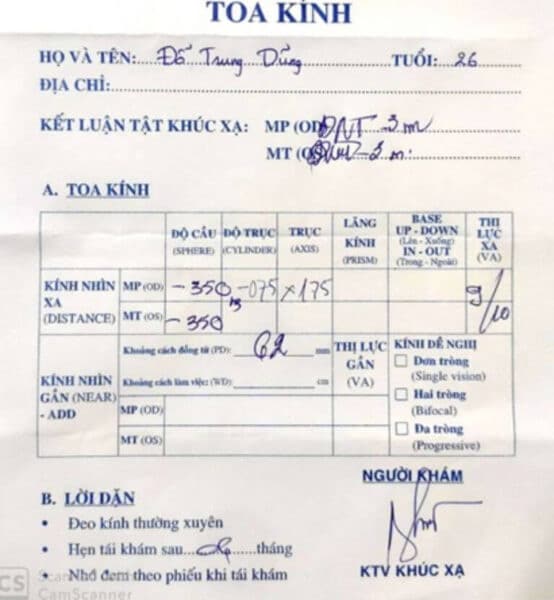 TOA KÍNH
HỌ VÀ TÊN:......Đỗ Trung Dũng............TUỔI:..26........
ĐỊA CHỈ:
KẾT LUẬN TẬT KHÚC XẠ: MP (OD) ĐNT 3m
MT (OS) ĐNT 3m
A. TOA KÍNH
ĐỘ CẦU (SPHERE) ĐỘ TRỤC (CYLINDER) TRỤC (AXIS) LĂNG KÍNH (PRISM) BASE UP - DOWN (Lên - Xuống) IN - OUT (Trong - Ngoài) THỊ LỰC XA (VA)
KÍNH NHÌN XA (DISTANCE) MP (OD) - 350 - 075 x 175 9/10
MT (OS) - 350
KÍNH NHÌN GẦN (NEAR) - ADD
Khoảng cách đồng tử (PD): 62 mm
Khoảng cách làm việc: (WD): cm
MP (OD)
MT (OS)
THỊ LỰC GẦN (VA)
KÍNH ĐỀ NGHỊ
Đơn tròng
(Single vision)
Hai tròng
(Bifocal)
Đa tròng
(Progressive)
B. LỜI DẶN
• Đeo kính thường xuyên
• Hẹn tái khám sau tháng
• Nhớ đem theo phiếu khi tái khám
NGƯỜI KHÁM
KTV KHÚC XẠ
CS CamScanner